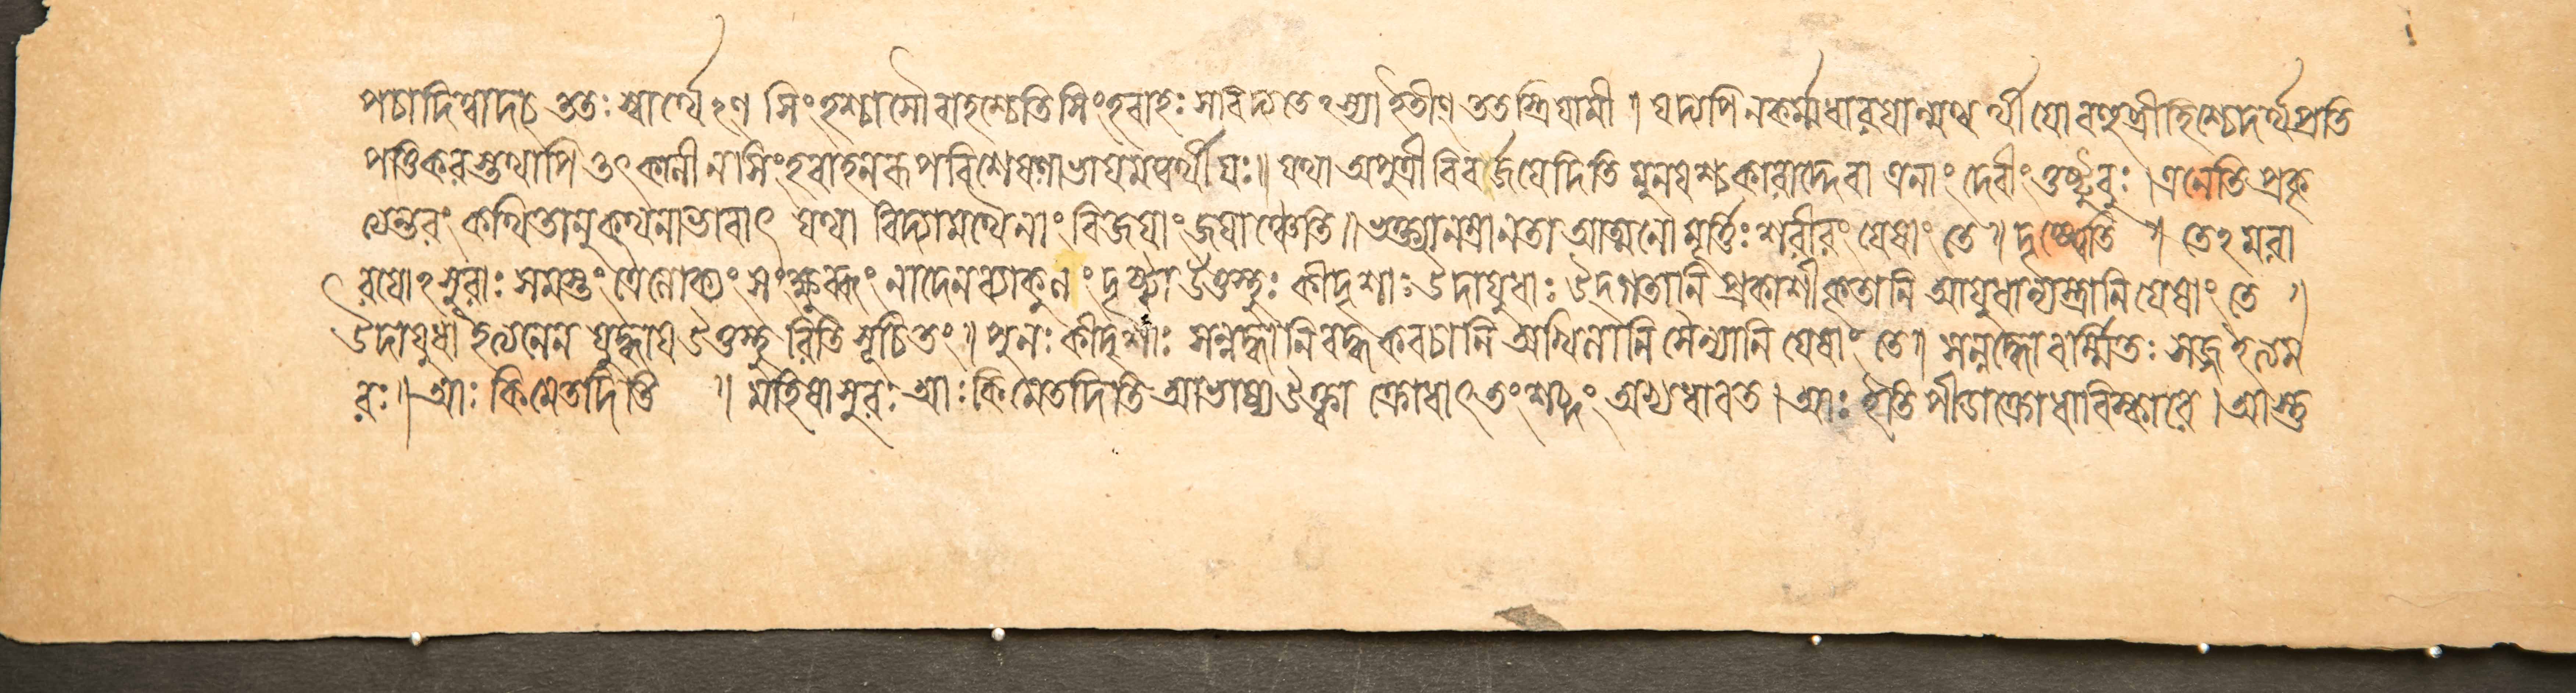 পচাদিত্বাদচ ততঃ স্বার্থেঽণ সিংহশ্চাসৌ বাহশ্চেতি সিংহবাহঃ সাবিদ্যতেঽস্যা ইতীণ ততস্ত্রিযামী ॥ যদ্যপি ন কর্ম্মধারযান্মত্বর্থীযো বহুব্রীহিশ্চেদর্থপ্রতি
পত্তিকরস্তথাপি তৎকালীন সিংহবাহনরূপবিশেষণাভাযমত্বর্থীযঃ॥ যথা অপুত্রী বিবর্জ্জযেদিতি মুনযশ্চকারাদ্দেবা এনাং দেবীং তুষ্টুবুঃ । এনেতি প্রকৃ
ত্যেন্তরং কথিতানুকথনাভাবাৎ যথা বিদ্যামথৈনাং বিজযাং জযাঞ্চেতি ॥ ভক্ত্যানম্রা নতা আত্মনো মূর্ত্তিঃ শরীরং যেষাং তে ॥ দৃষ্ট্বেতি ॥ তেঽমরা
রযোঽসুরাঃ সমস্তং ত্রৈলোক্যং সংক্ষুব্ধং নাদেন ব্যাকুলং দৃষ্ট্বা উত্তস্থুঃ কীদৃশাঃ উদাযুধাঃ উদ্গতানি প্রকাশীকৃতানি আযুধান্যস্ত্রানি যেষাং তে ॥
উদাযুধা ইত্যনেন যুদ্ধায উত্তস্থুরিতি সূচিতং ॥ পুনঃ কীদৃশাঃ সন্নদ্ধানি বদ্ধকবচানি অখিলানি সৈন্যানি যেষাং তে ॥ সন্নদ্ধো বর্ম্মিতঃ সজ্জ ইত্যম
রঃ ॥ আঃ কিমেতদিতি ॥ মহিষাসুরঃ আঃ কিমেতদিতি আভাষ্য উক্ত্বা ক্রোধাৎ তং শব্দং অভ্যধাবত । আঃ ইতি পীডাক্রোধাবিস্কারে । আস্তু